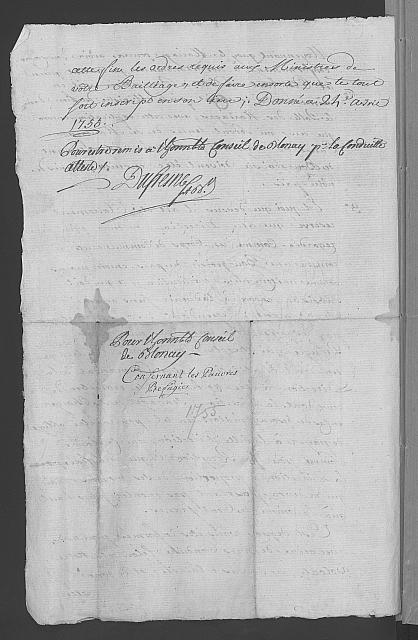 cette fin les ordres requis aux Ministres de
votre Bailliage, et de faire ensorte que le tout
soit inscript en son lieu; Donné au de 4e. Avril
1755.
Pour être remis à l'honnble Conseil de Blonay pr. la Conduitte
attesté
Dufresne
Pour l'honnble Conseil
de Blonay
Consernant les Pauvres
Refugiés
1755